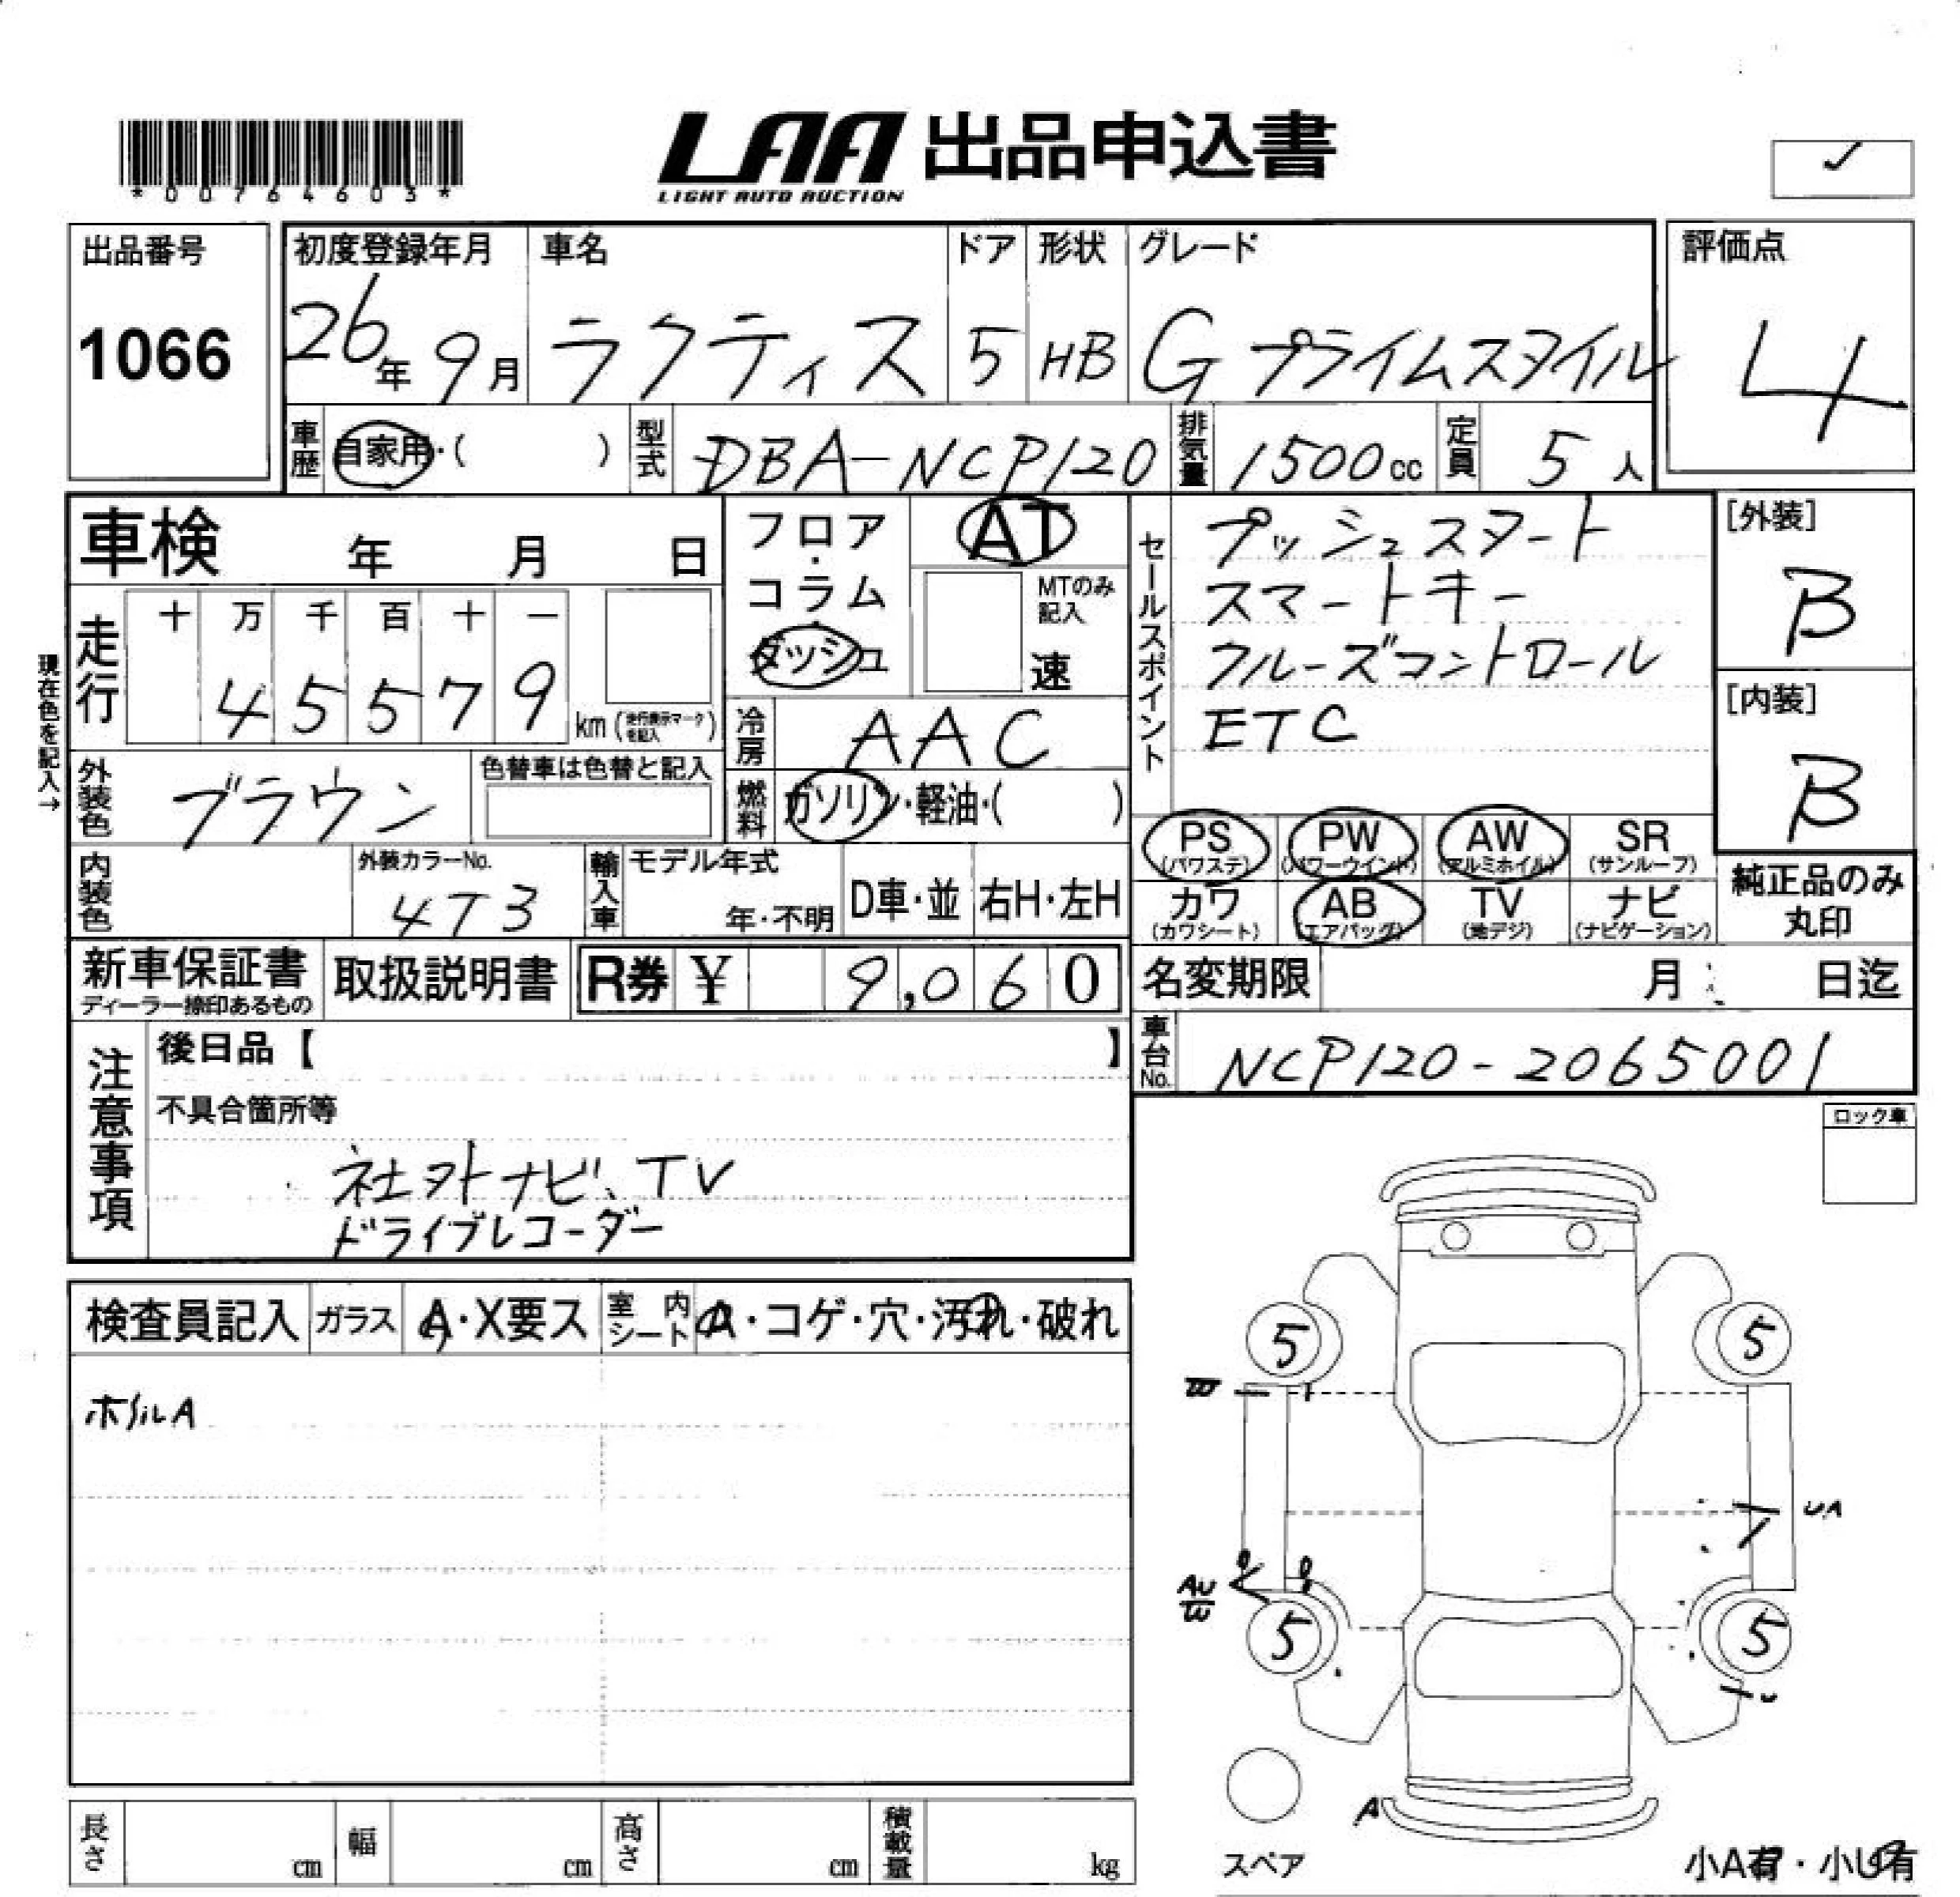 *00764603*
LAA 出品申込書
LIGHT AUTO AUCTION
✓
出品番号
1066
初度登録年月
26年 9月
車名
ラクティス
ドア
5
形状
HB
グレード
G プライムスタイル
評価点
4
車歴
自家用・( )
型式
DBA-NCP120
排気量
1500cc
定員
5人
車検 年 月 日
フロア・コラム
ダッシュ
AT
MTのみ記入
速
セールスポイント
プッシュスタート
スマートキー
クルーズコントロール
ETC
[外装]
B
[内装]
B
現在色を記入→
走行
十 万 千 百 十 一
4 5 5 7 9
km (走行表示マークを記入)
冷房
AAC
外装色
ブラウン
色替車は色替と記入
燃料
ガソリン・軽油・( )
PS (パワステ)
PW (パワーウインド)
AW (アルミホイル)
SR (サンルーフ)
カワ (カワシート)
AB (エアバッグ)
TV (地デジ)
ナビ (ナビゲーション)
純正品のみ丸印
内装色
外装カラーNo.
4T3
輸入車
モデル年式
年・不明
D車・並
右H・左H
新車保証書
ディーラー捺印あるもの
取扱説明書
R券 ¥ 9,060
名変期限 月 日迄
車台No.
NCP120-2065001
注意事項
後日品【 】
不具合箇所等
社外ナビ、TV
ドライブレコーダー
ロック車
検査員記入
ガラス
A・X要ス
室内シート
・コゲ・穴・汚れ・破れ
ホイルA
5
5
W
UA
AU
W
5
5
U
A
スペア
小A有・小U有
長さ cm
幅 cm
高さ cm
積載量 kg